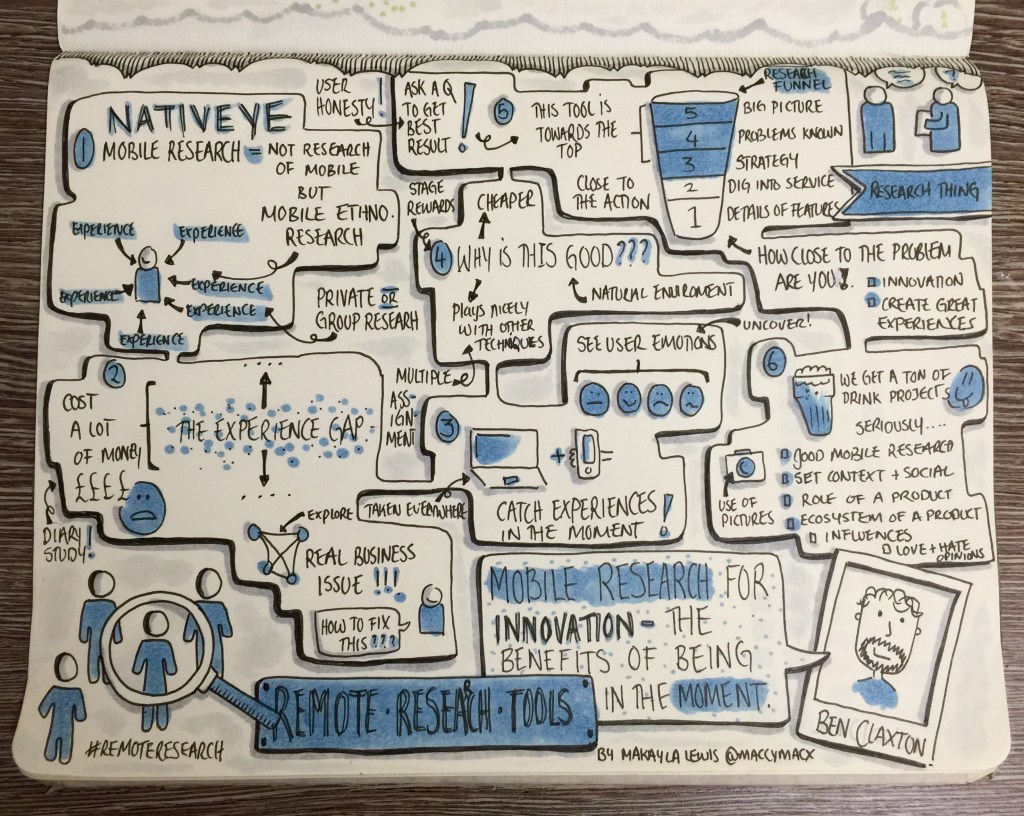 NATIVEYE
1
MOBILE RESEARCH = NOT RESEARCH
OF MOBILE
BUT
MOBILE ETHNO.
RESEARCH
EXPERIENCE
EXPERIENCE
EXPERIENCE
EXPERIENCE
EXPERIENCE
EXPERIENCE
PRIVATE OR
GROUP RESEARH
USER
HONESTY!
ASK A Q
TO GET
BEST
RESULT!
5
THIS TOOL IS
TOWARDS THE
TOP
CLOSE TO
THE ACTION
RESEARH
FUNNEL
5
4
3
2
1
BIG PICTURE
PROBLEMS KNOWN
STRATEGY
DIG INTO SERVICE
DETAILS OF FEATURES
?
RESEARCH THING
HOW CLOSE TO THE PROBLEM
ARE YOU?
INNOVATION
CREATE GREAT
EXPERIENCES
STAGE
REWARDS
CHEAPER
4
WHY IS THIS GOOD???
NATURAL ENVIROMENT
PLAYS NICELY
WITH OTHER
TECHNIQUES
2
COST
A LOT
OF MONEY
££££
DIARY
STUDY!
THE EXPERIENCE GAP
EXPLORE
REAL BUSINESS
ISSUE !!!
HOW TO FIX
THIS???
MULTIPLE
ASS-
IGN-
MENT
3
SEE USER EMOTIONS
UNCOVER!
+
TAKEN EVERYWHERE
CATCH EXPERIENCES
IN THE MOMENT!
6
WE GET A TON OF
DRINK PROJECTS
SERIOUSLY....
USE OF
PICTURES
GOOD MOBILE RESEARCH
SET CONTEXT + SOCIAL
ROLE OF A PRODUCT
ECOSYSTEM OF A PRODUCT
INFLUENCES
LOVE + HATE
OPINIONS
MOBILE RESEARCH FOR
INNOVATION - THE
BENEFITS OF BEING
IN THE MOMENT.
BEN CLAXTON
REMOTE · RESEARCH · TOOLS
#REMOTERESEARCH
BY MAKAYLA LEWIS @MACCYMACX